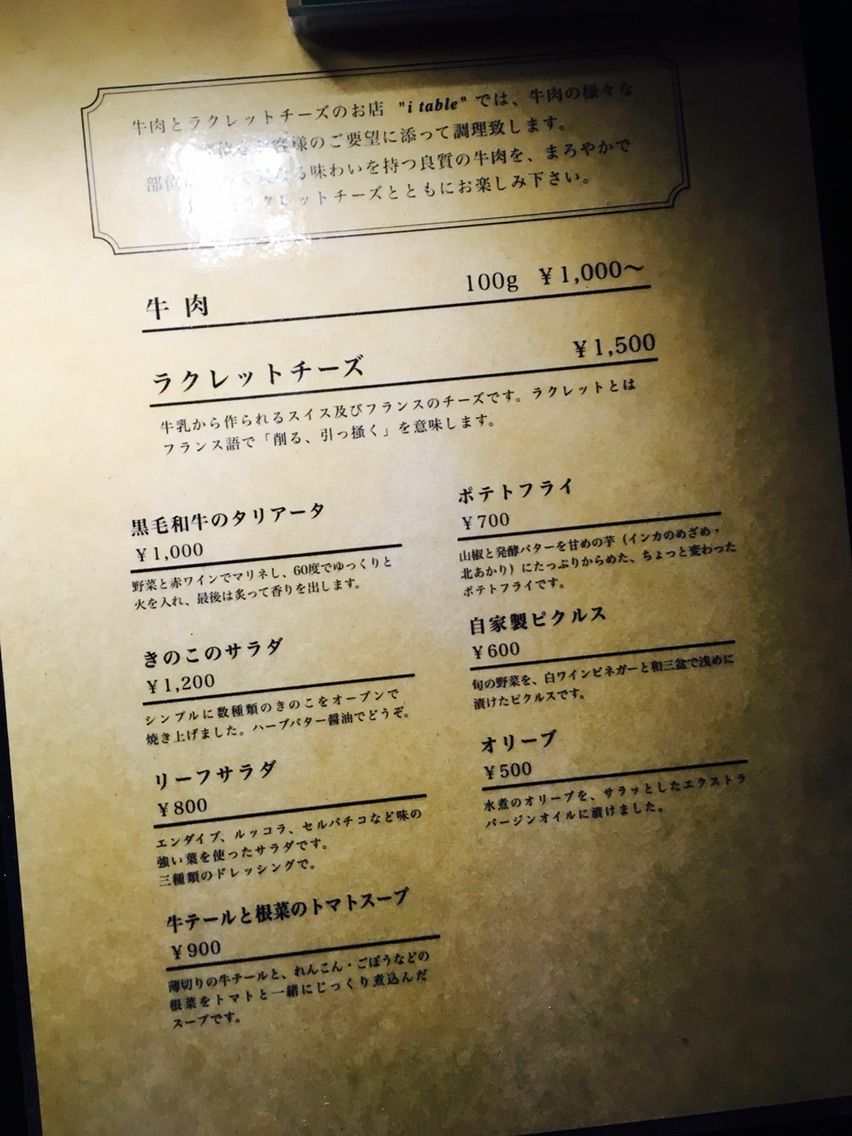 牛肉とラクレットチーズのお店 "i table" では、牛肉の様々な
部位をお客様のご要望に添って調理致します。
部位によって異なる味わいを持つ良質の牛肉を、まろやかで
ラクレットチーズとともにお楽しみ下さい。
牛 肉 100g ¥1,000〜
ラクレットチーズ ¥1,500
牛乳から作られるスイス及びフランスのチーズです。ラクレットとは
フランス語で「削る、引っ掻く」を意味します。
黒毛和牛のタリアータ
¥1,000
野菜と赤ワインでマリネし、60度でゆっくりと
火を入れ、最後は炙って香りを出します。
きのこのサラダ
¥1,200
シンプルに数種類のきのこをオーブンで
焼き上げました。ハーブバター醤油でどうぞ。
リーフサラダ
¥800
エンダイブ、ルッコラ、セルバチコなど味の
強い葉を使ったサラダです。
三種類のドレッシングで。
牛テールと根菜のトマトスープ
¥900
薄切りの牛テールと、れんこん・ごぼうなどの
根菜をトマトと一緒にじっくり煮込んだ
スープです。
ポテトフライ
¥700
山椒と発酵バターを甘めの芋（インカのめざめ・
北あかり）にたっぷりからめた、ちょっと変わった
ポテトフライです。
自家製ピクルス
¥600
旬の野菜を、白ワインビネガーと和三盆で浅めに
漬けたピクルスです。
オリーブ
¥500
水煮のオリーブを、サラッとしたエクストラ
バージンオイルに漬けました。